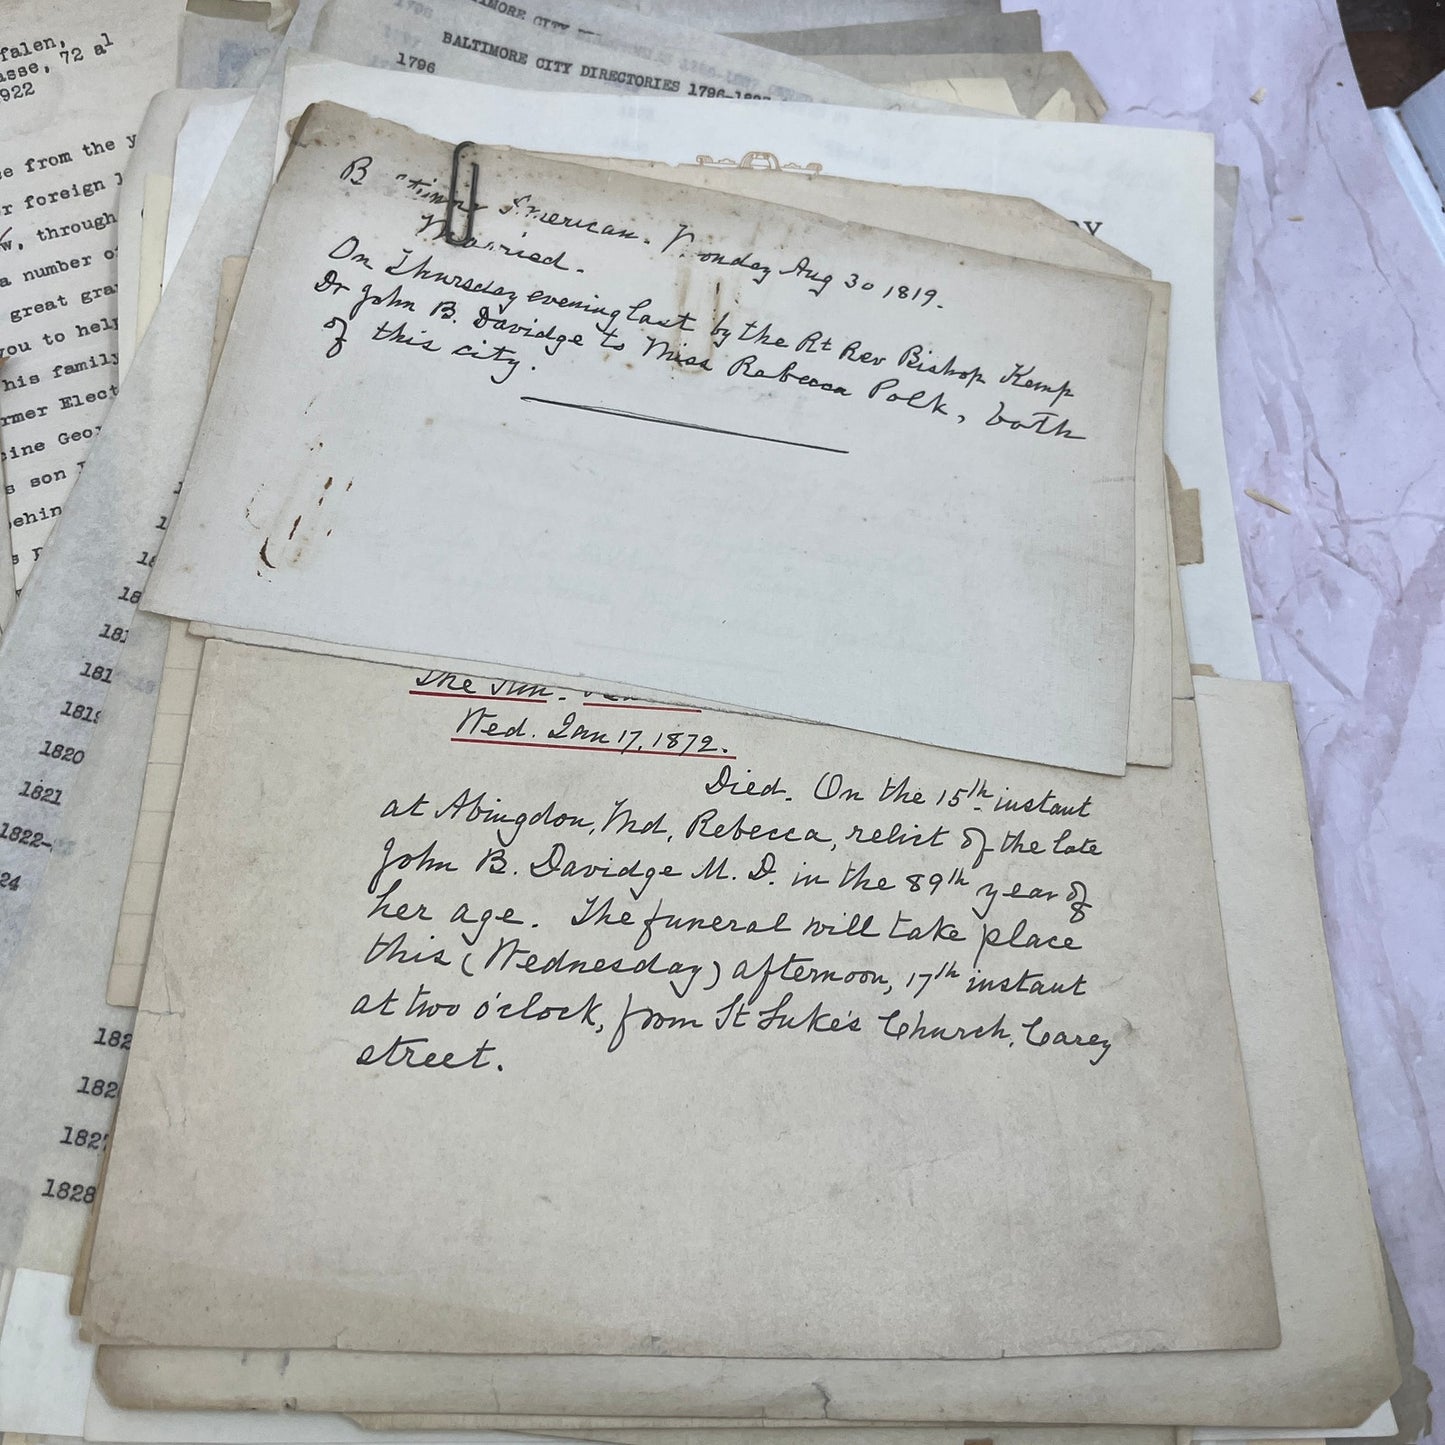 falen,
asse, 72 al
922
e from the y
r foreign
w, through
a number o
great gra
you to help
his family
rmer Elect
cine Geor
s son
ehin
BALTIMORE CITY
BALTIMORE CITY DIRECTORIES 1796-1827
1796
18
181
181
1819
1820
1821
1822-
24
182
182
1827
1828
B timore American. Monday Aug 30 1819.
Married.
On Thursday evening last by the Rt Rev Bishop Kemp
Dr John B. Davidge to Miss Rebecca Polk, both
of this city.
The Sun.
Wed. Jan 17, 1872.
Died. On the 15th instant
at Abingdon, Md, Rebecca, relict of the late
John B. Davidge M. D. in the 89th year of
her age. The funeral will take place
this (Wednesday) afternoon, 17th instant
at two o'clock, from St Luke's Church, Carey
street.